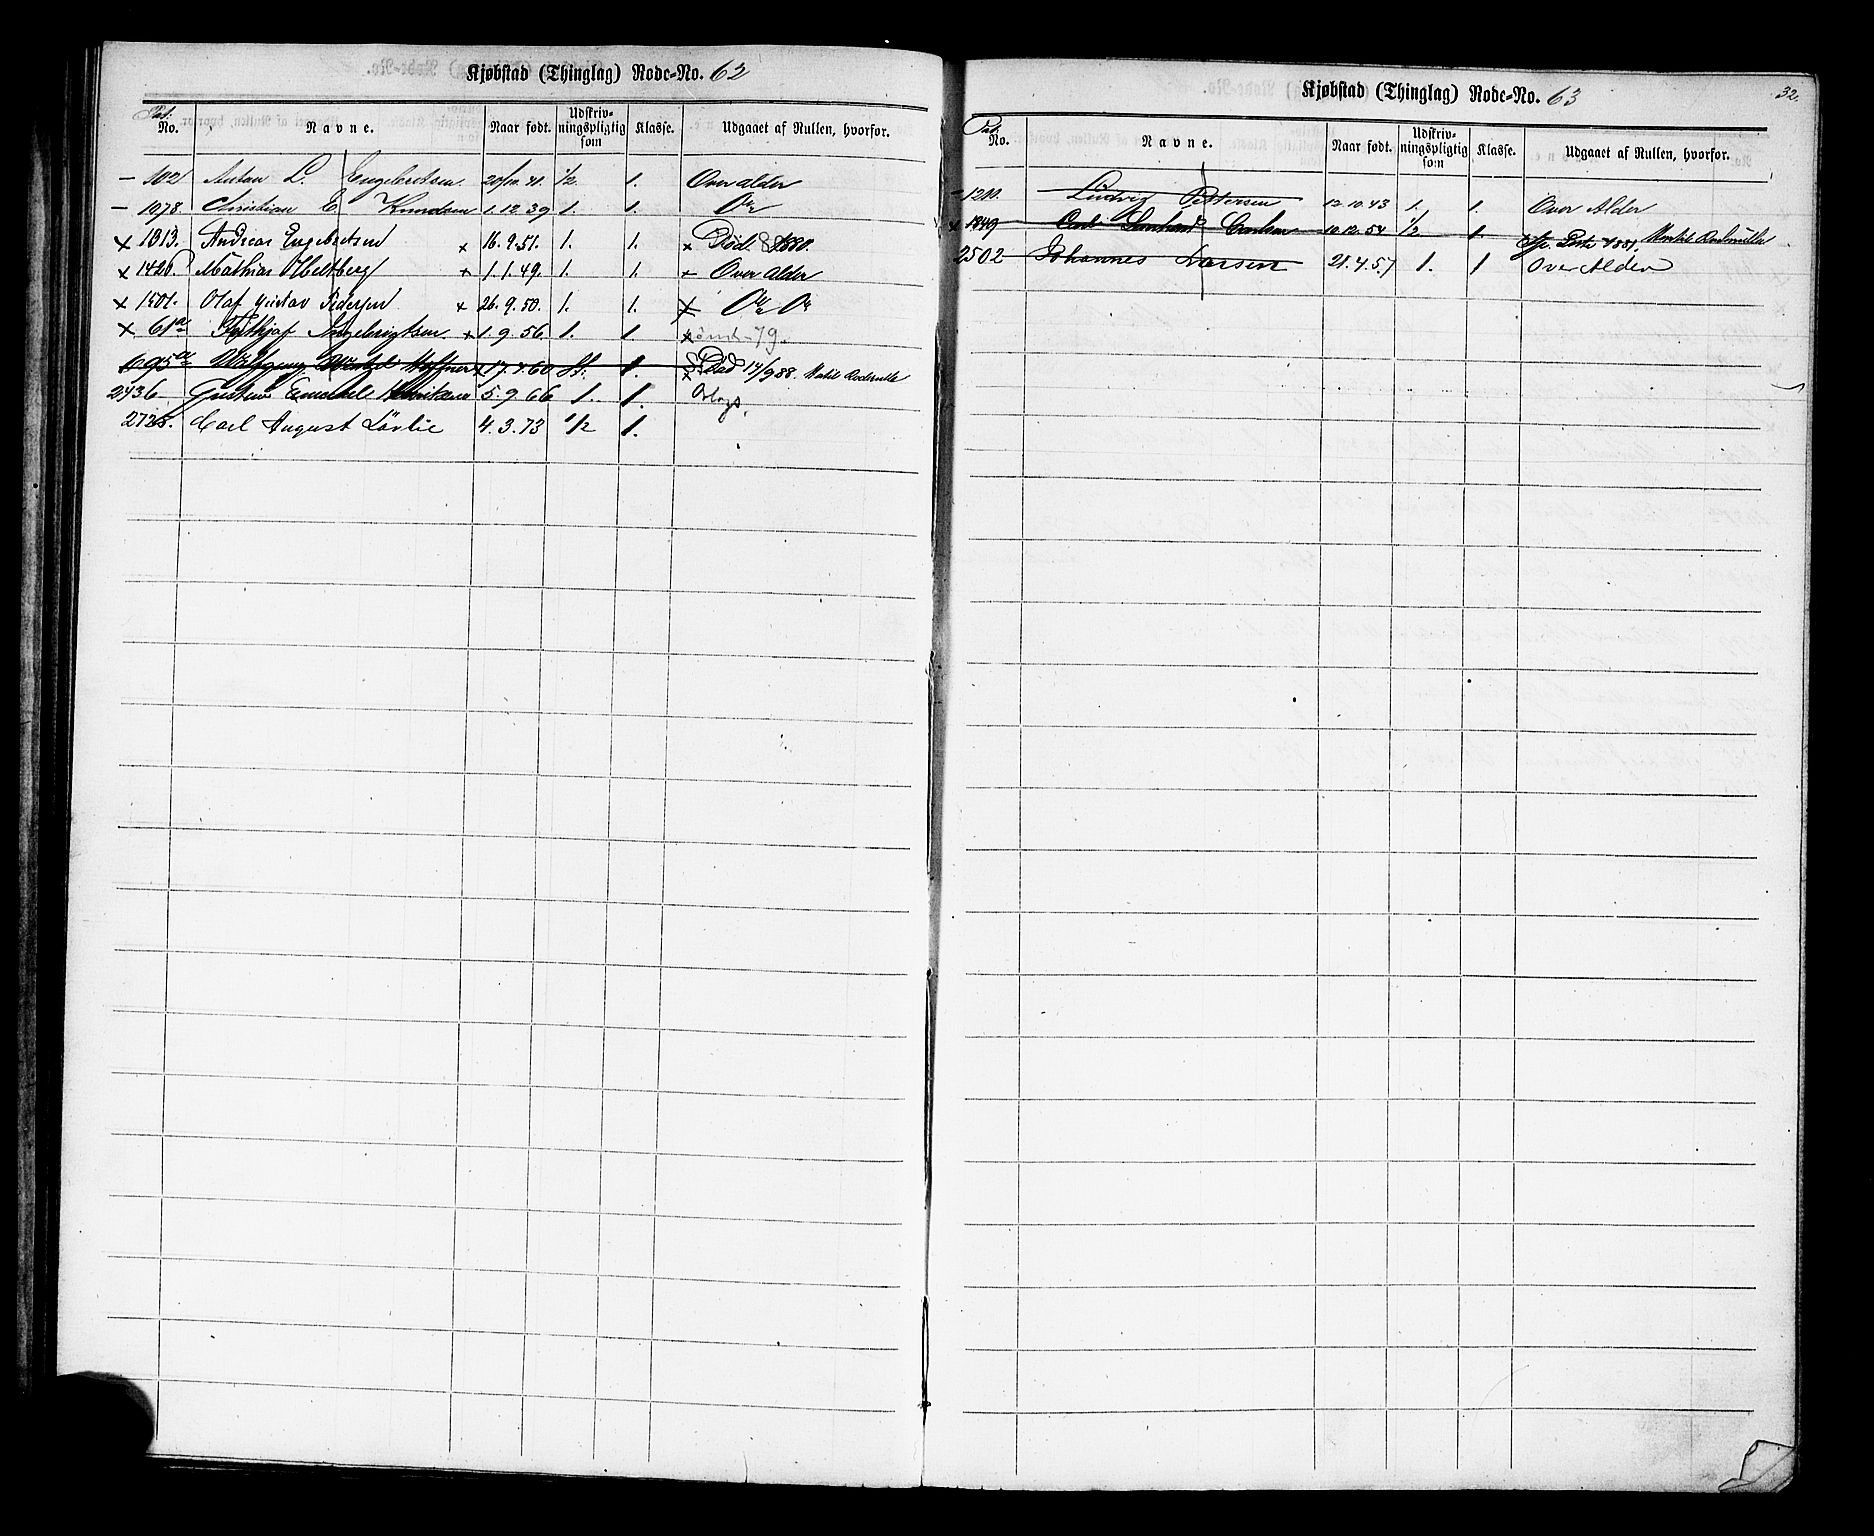 Kjøbstad (Thinglag) Rode-No. 62
Pat. No. Navne. Naar født. Udskriv-ningspligtig som Klasse. Udgaaet af Rullen, hvorfor.
– 102 Anton L. Engebretsen 20/10 41. 1/2 1. Over alder
– 1078 Christian E. Knudsen 1.12.39 1. 1.
x 1313. Andreas Engebretsen x 16.9.51. 1. 1. x Død. 1880.
x 1426. Mathias Heltberg x 1.1.49. 1. 1. Over alder
x 1501. Olaf Gustav Pedersen x 26.9.50. 1. 1. x
x 61a Fridthjof Ingebrigtsen x 1.9.56 1. 1. x
695a 17.7.60 St. 1. 14/9 88.
2436 Gustav 5.9.66 1. 1.
2728. Carl August Lövlie 4.3.73 1/2 1.
Kjøbstad (Thinglag) Rode-No. 63
32.
Pat. No. Navne. Naar født. Udskriv-ningspligtig som Klasse. Udgaaet af Rullen, hvorfor.
– 1210. Ludvig Pettersen 12.10.43 1. 1. Over Alder
x 1849 Carl Carlsen 10.12.54 1/2 1. 1881.
2502 Johannes Larsen 21.4.57 1. 1 Over Alder